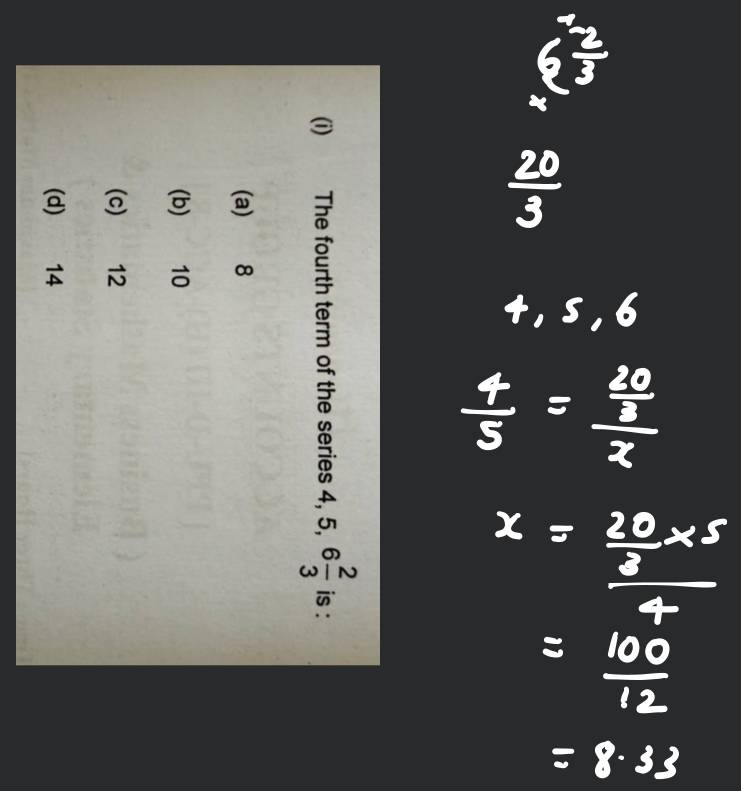 (i) The fourth term of the series 4, 5, 6 2/3 is :
(a) 8
(b) 10
(c) 12
(d) 14
6 2/3
20/3
4, 5, 6
4/5 = (20/3)/x
x = (20/3 × 5)/4
= 100/12
= 8.33